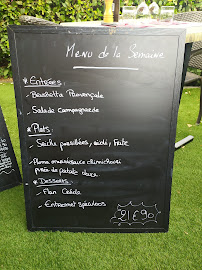 Menu de la Semaine
* Entrées :
- Bruschetta Provençale
- Salade Campagnarde
* Plats :
- Seiche persillées, aïoli, Frite
- Pluma sauce chimichuri
purée de patate douce.
* Desserts :
- Flan Coco
- Entremet Spéculoos
21€90